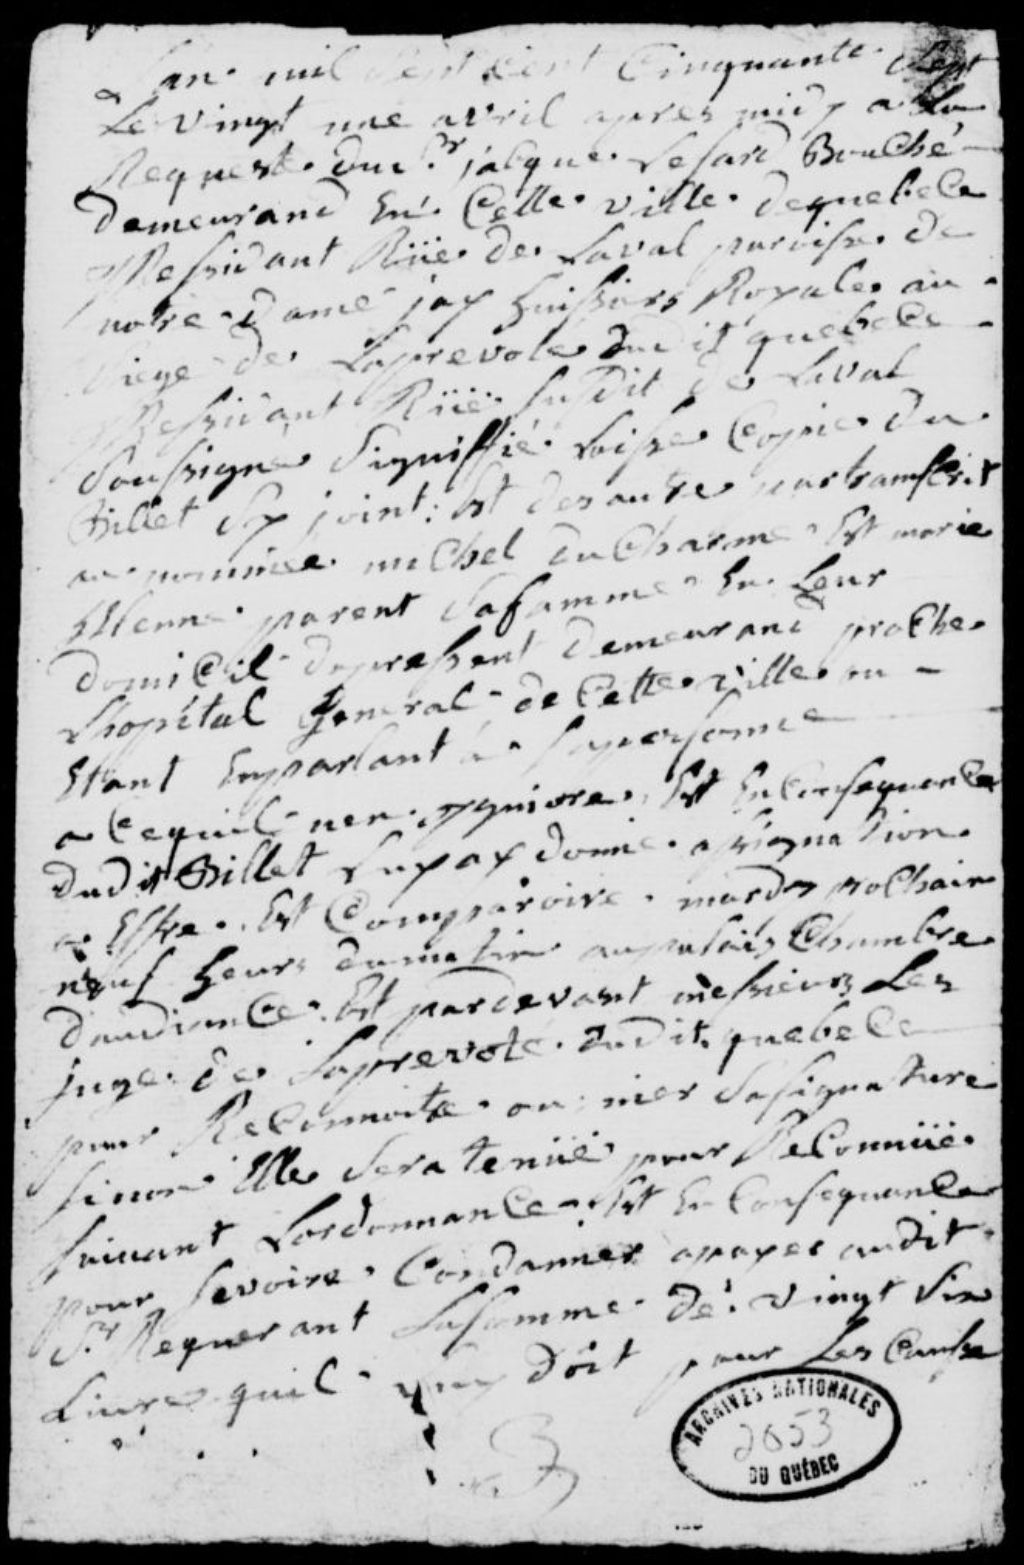 Lan mil sept cent Cinquante Sept
Le vingt une avril apres midy a La
Requeste du Sr jalque Lefard Bouché
demeurand En Cette ville de quebele
Ressidant Rüe de Laval paroisse de
notre Dame jay huissiers Royale au
siege de Laprevoté dudit quebele
Ressidant Rüe susdit de Laval
soussigné Signiffié Laisse Copie du
Billet sy joint Et des autre part transcrit
au nommée michel ducharme Est marie
Etienne parent safamme En Leur
domicil depressent demeurand proche
Lhopital General de Cette ville en
Etant Enparlant a sapersonne
a Cequil nen Igniore Est En Consequance
dudit Billet Luy ay donné assignation
a Estre Est Comparoire mardy prochain
neuf heurs dumatin aupalais Chambre
daudiance Est pardevant messieurs Les
juge de Laprevoté dudit quebele
pour Reconnoitre ou nier sasignature
sinon Elle sera tenüe pour Reconnüe
suivant Lordonnance Est En Consequance
pour sevoire Condanner apayer audit
Sr Requerant Lasomme de vingt six
Livre quil Luy Doit pour Les Causse
ARCHIVES NATIONALES
2053
DU QUÉBEC